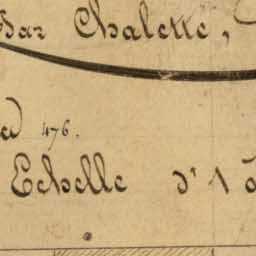 Par Chalette,
476.
Echelle d'1 à